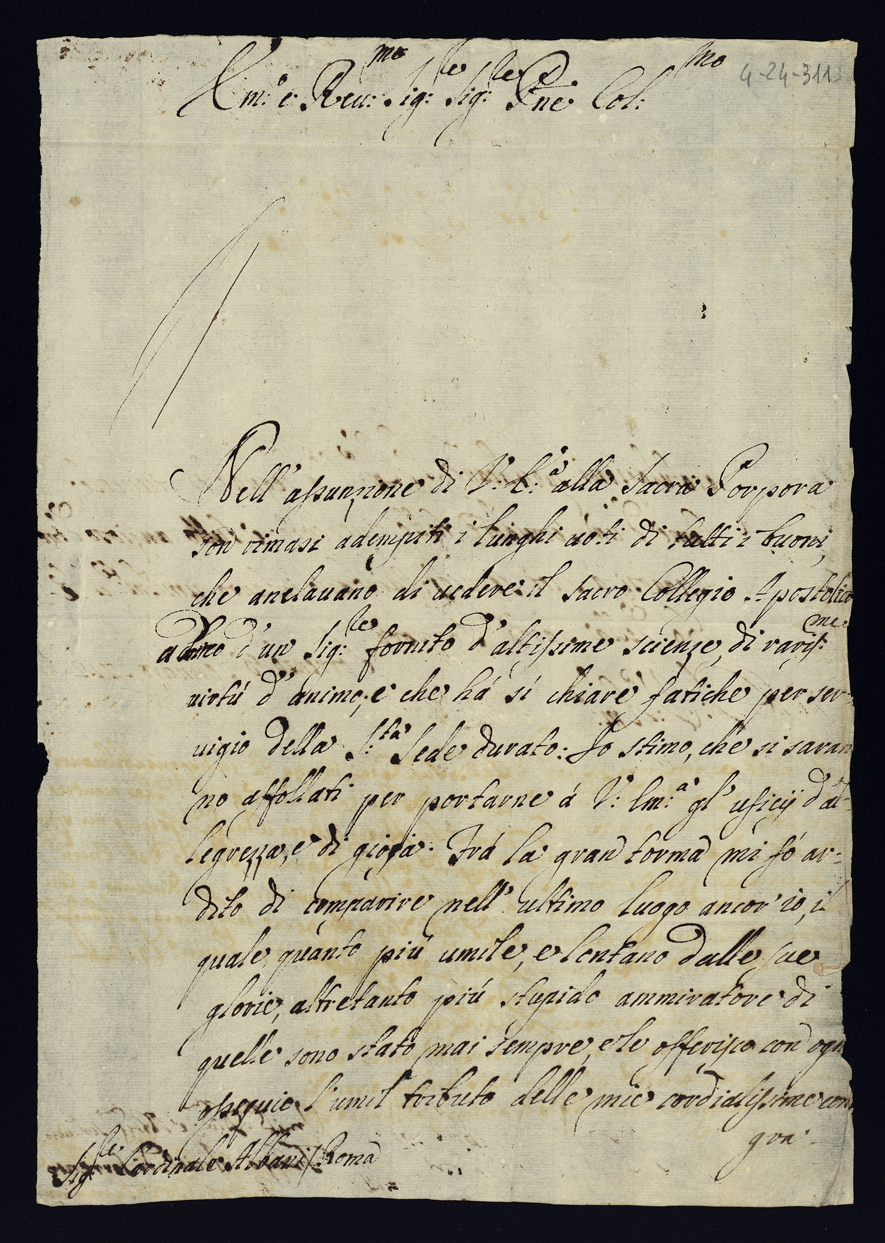 4-24-311
Em:o e Reu:mo Sig:re Sig:re Pne Col:mo
Nell' assunzione di V: E:a alla Sacra Porpora
son rimasi adempiti i lunghi uoti di tutti i buoni,
che anelauano di uedere il sacro Collegio Apostolico
adorno d' un Sig:re fornito d' altissime scienze, di raris:me
uirtú d' animo, e che há si chiare fatiche per ser-
uigio della S:ta Sede durato: Io stimo, che si saran
no affollati per portarne á V: Em:a gl' uficij d' al-
legrezza, e di gioja. Trá la gran torma mi fó ar-
dito di comparire nell' ultimo luogo ancor' io, il
quale quanto piú umile, e lontano dalle sue
glorie, altretanto piú stupido ammiratore di
quelle sono stato mai sempre, e le offerisco con ogni
ossequio l' umil tributo delle mie cordialissime con
gra-
Sig:re Cardinale Albani /: Roma